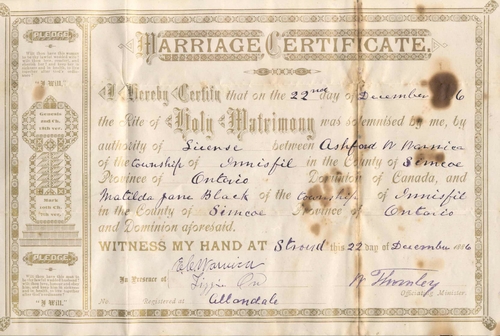 PLEDGE.
"I Will."
Genesis
2nd Ch.
18th ver.
Mark
10th Ch.
7th ver.
PLEDGE.
"I Will"
MARRIAGE CERTIFICATE.
I Hereby Certify that on the 22nd day of December
the Rite of Holy Matrimony was solemnised by me, by
authority of License between Ashford W Warnica
of the township of Innisfil in the County of Simcoe
Province of Ontario Dominion of Canada, and
Matilda jane Black of the township of Innisfil
in the County of Simcoe Province of Ontario
and Dominion aforesaid.
WITNESS MY HAND AT Stroud this 22 day of December 1886
In Presence of Warnica W Thornley
Lizzie Officiating Minister.
No. Registered at Allandale